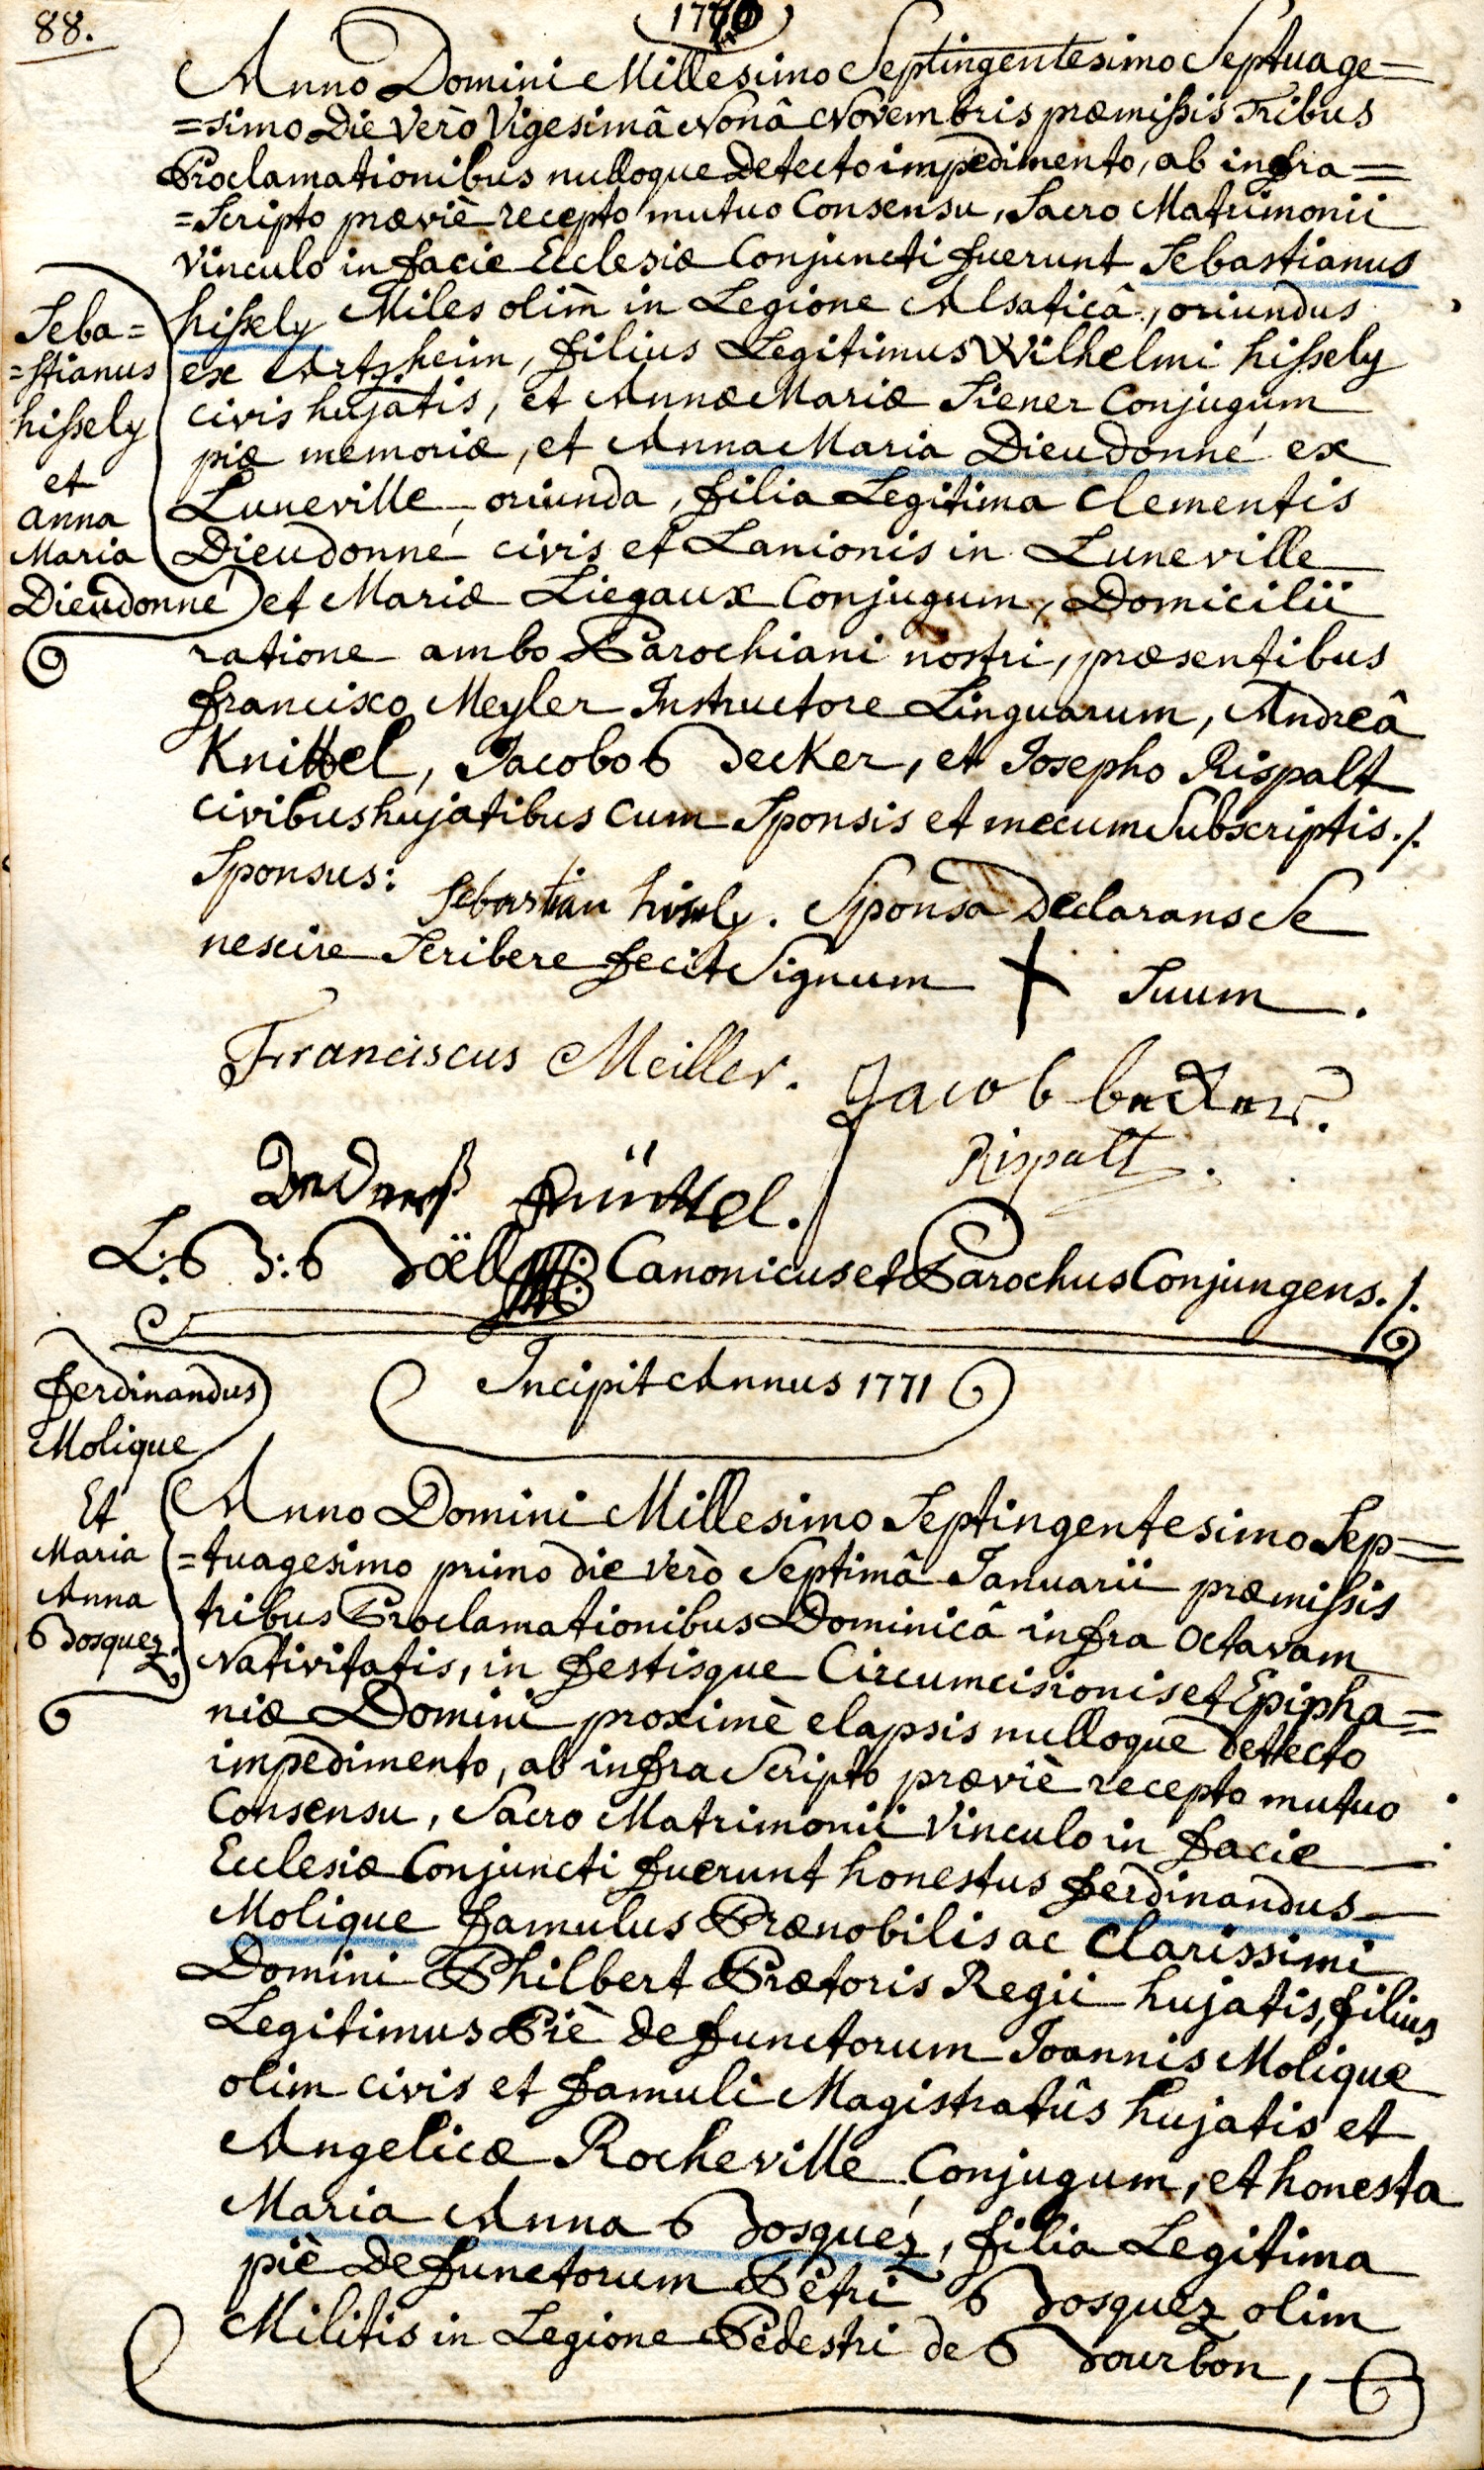 88.
1770
Anno Domini Millesimo Septingentesimo Septuage=
=simo Die Verò Vigesimâ Nonâ Novembris præmissis Tribus
Proclamationibus nulloque Detecto impedimento, ab infra=
=Scripto præviè recepto mutuo Consensu, Sacro Matrimonii
Vinculo in facie Ecclesiæ Conjuncti fuerunt Sebastianus
hissely Miles olim in Legione Alsaticâ, oriundus
ex Artzheim, filius Legitimus Wilhelmi hissely
civis hujatis, et Annæ Mariæ Siener Conjugum
piæ memoriæ, et Anna Maria Dieudonné ex
Luneville oriunda, filia Legitima Clementis
Dieudonné civis et Lanionis in Luneville
et Mariæ Liegaux Conjugum, Domicilii
ratione ambo Parochiani nostri, præsentibus
francisco Meyler Instructore Linguarum, Andreâ
Knittel, Jacobo Becker, et Josepho Rispalt
civibus hujatibus cum Sponsis et mecum Subscriptis./.
Seba=
=stianus
hissely
et
anna
Maria
Dieudonné
Sponsus: Sebastian hisely. Sponsa Declarans Se
nescire Scribere fecit Signum + Suum.
Franciscus Meiller. Jacob becker.
Rispalt.
Andreas Knüttel.
L: B: Böll Canonicus et Parochus Conjungens./.
Incipit Annus 1771
ferdinandus
Molique
Et
Maria
Anna
Bosquez.
Anno Domini Millesimo Septingentesimo Sep=
=tuagesimo primo die verò Septimâ Januarii præmissis
tribus Proclamationibus Dominicâ infra Octavam
Nativitatis, in festisque Circumcisionis et Epipha=
niæ Domini proximè elapsis nulloque dettecto
impedimento, ab infra Scripto præviè recepto mutuo
Consensu, Sacro Matrimonii Vinculo in facie
Ecclesiæ Conjuncti fuerunt honestus ferdinandus
Molique famulus Prænobilis ac Clarissimi
Domini Philbert Prætoris Regii hujatis, filius
Legitimus Piè defunctorum Joannis Molique
olim civis et famuli Magistratûs hujatis et
Angelicæ Rocheville Conjugum, et honesta
Maria Anna Bosquéz, filia Legitima
piè Defunctorum Petri Bosquez olim
Militis in Legione Pedestri de Bourbon,